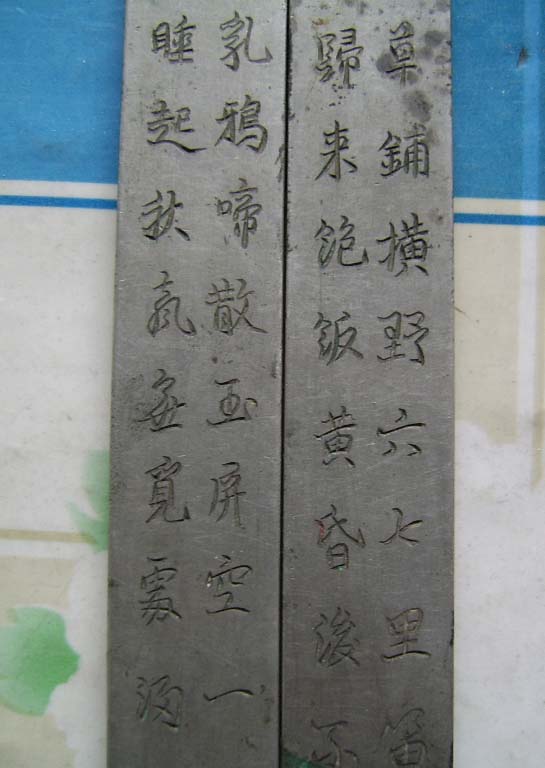 草鋪橫野六七里笛
歸来飽飯黄昏後不
乳鴉啼散玉屏空一
睡起秋無覓處滿